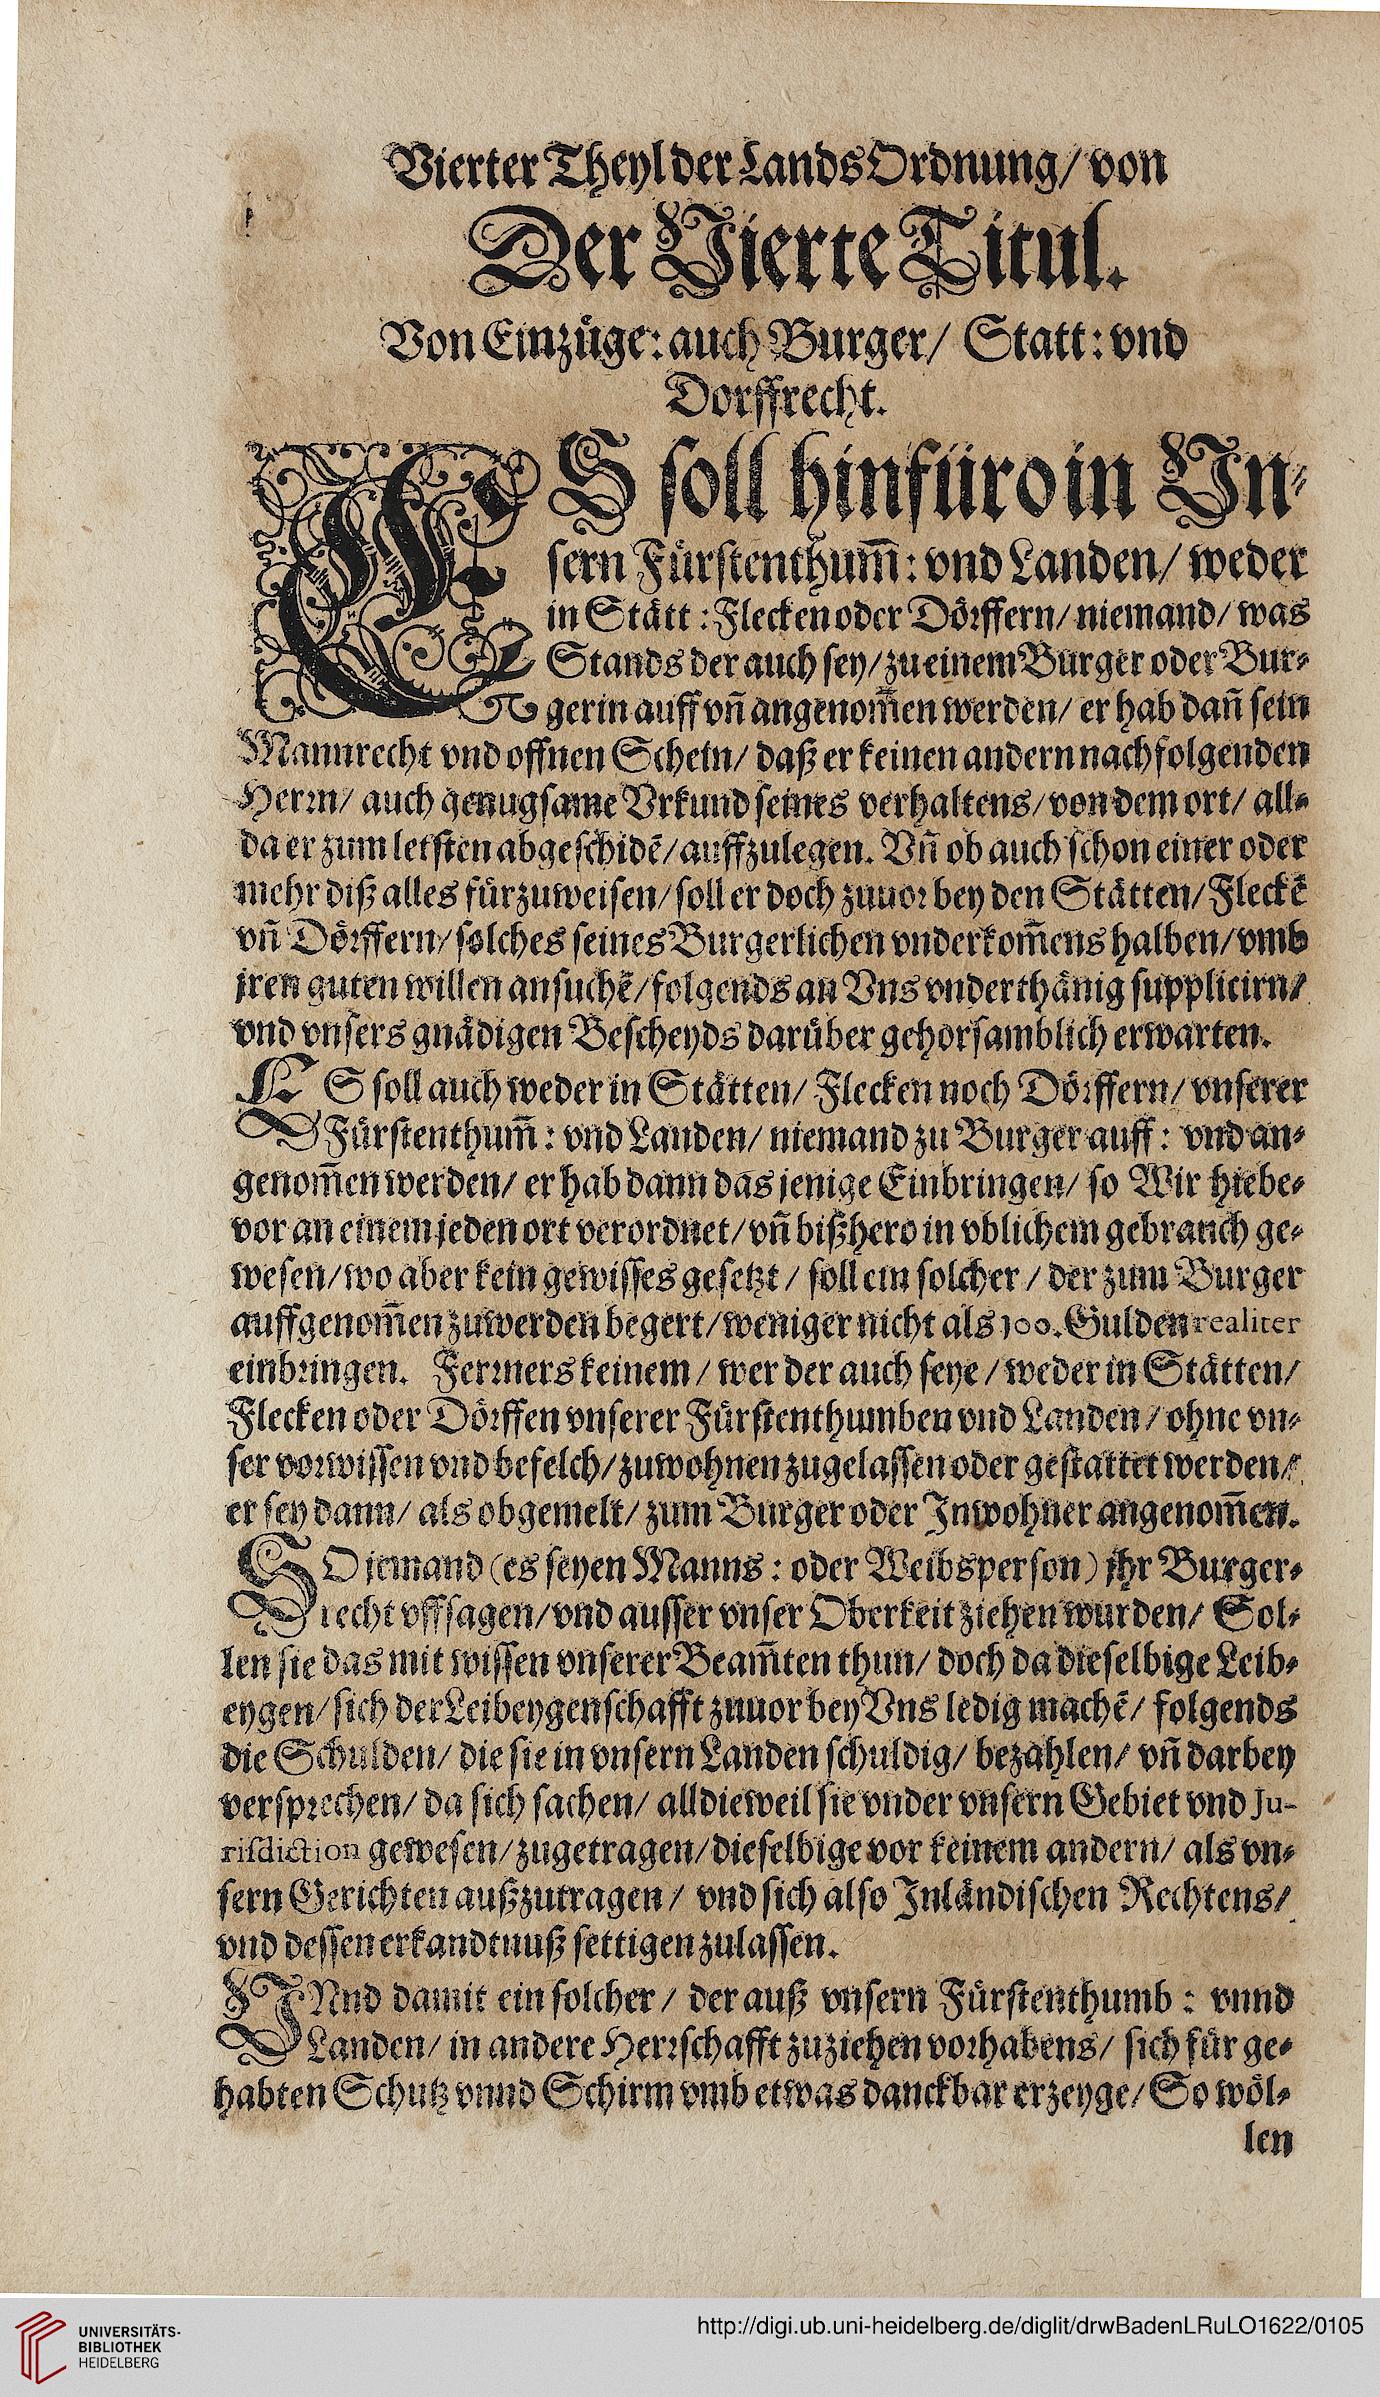 Vierter Theyl der LandsOrdnung/ von
Der Vierte Titul.
Von Einzüge: auch Burger/ Statt: vnd
Dorffrecht.
ES soll hinfüro in Un-
sern Fürstenthum̄: vnd Landen/ weder
in Stätt: Flecken oder Dörffern/ niemand/ was
Stands der auch sey/ zu einem Burger oder Bur-
gerin auff vn̄ angenom̄en werden/ er hab dan̄ sein
Mannrecht vnd offnen Schein/ daß er keinen andern nachfolgenden
Herrn/ auch genugsame Vrkund seines verhaltens/ von dem ort/ all-
da er zum letsten abgeschidē/ auffzulegen. Vn̄ ob auch schon einer oder
mehr diß alles fürzuweisen/ soll er doch zuuor bey den Stätten/ Fleckē
vn̄ Dörffern/ solches seines Burgerlichen vnderkom̄ens halben/ vmb
jren guten willen ansuchē/ folgends an Vns vnderthänig supplicirn/
vnd vnsers gnädigen Bescheyds darüber gehorsamblich erwarten.
ES soll auch weder in Stätten/ Flecken noch Dörffern/ vnserer
Fürstenthum̄: vnd Landen/ niemand zu Burger auff: vnd an-
genom̄en werden/ er hab dann das jenige Einbringen/ so Wir hiebe-
vor an einem jeden ort verordnet/ vn̄ bißhero in vblichem gebrauch ge-
wesen/ wo aber kein gewisses gesetzt/ soll ein solcher/ der zum Burger
auffgenom̄en zuwerden begert/ weniger nicht als 100. Gulden realiter
einbringen. Ferrners keinem/ wer der auch seye/ weder in Stätten/
Flecken oder Dörffen vnserer Fürstenthumben vnd Landen/ ohne vn-
ser vorwissen vnd befelch/ zuwohnen zugelassen oder gestattet werden/
er sey dann/ als obgemelt/ zum Burger oder Inwohner angenom̄en.
SO jemand (es seyen Manns: oder Weibsperson) jhr Burger-
recht vffsagen/ vnd ausser vnser Oberkeit ziehen wurden/ Sol-
len sie das mit wissen vnserer Beam̄ten thun/ doch da dieselbige Leib-
eygen/ sich der Leibeygenschafft zuuor bey Vns ledig machē/ folgends
die Schulden/ die sie in vnsern Landen schuldig/ bezahlen/ vn̄ darbey
versprechen/ da sich sachen/ alldieweil sie vnder vnsern Gebiet vnd Ju-
risdiction gewesen/ zugetragen/ dieselbige vor keinem andern/ als vn-
sern Gerichten außzutragen/ vnd sich also Inländischen Rechtens/
vnd dessen erkandtnuß settigen zulassen.
VNnd damit ein solcher/ der auß vnsern Fürstenthumb: vnnd
Landen/ in andere Herrschafft zuziehen vorhabens/ sich für ge-
habten Schutz vnnd Schirm vmb etwas danckbar erzeyge/ So wöl-
len
UNIVERSITÄTS-
BIBLIOTHEK
HEIDELBERG
http://digi.ub.uni-heidelberg.de/diglit/drwBadenLRuLO1622/0105